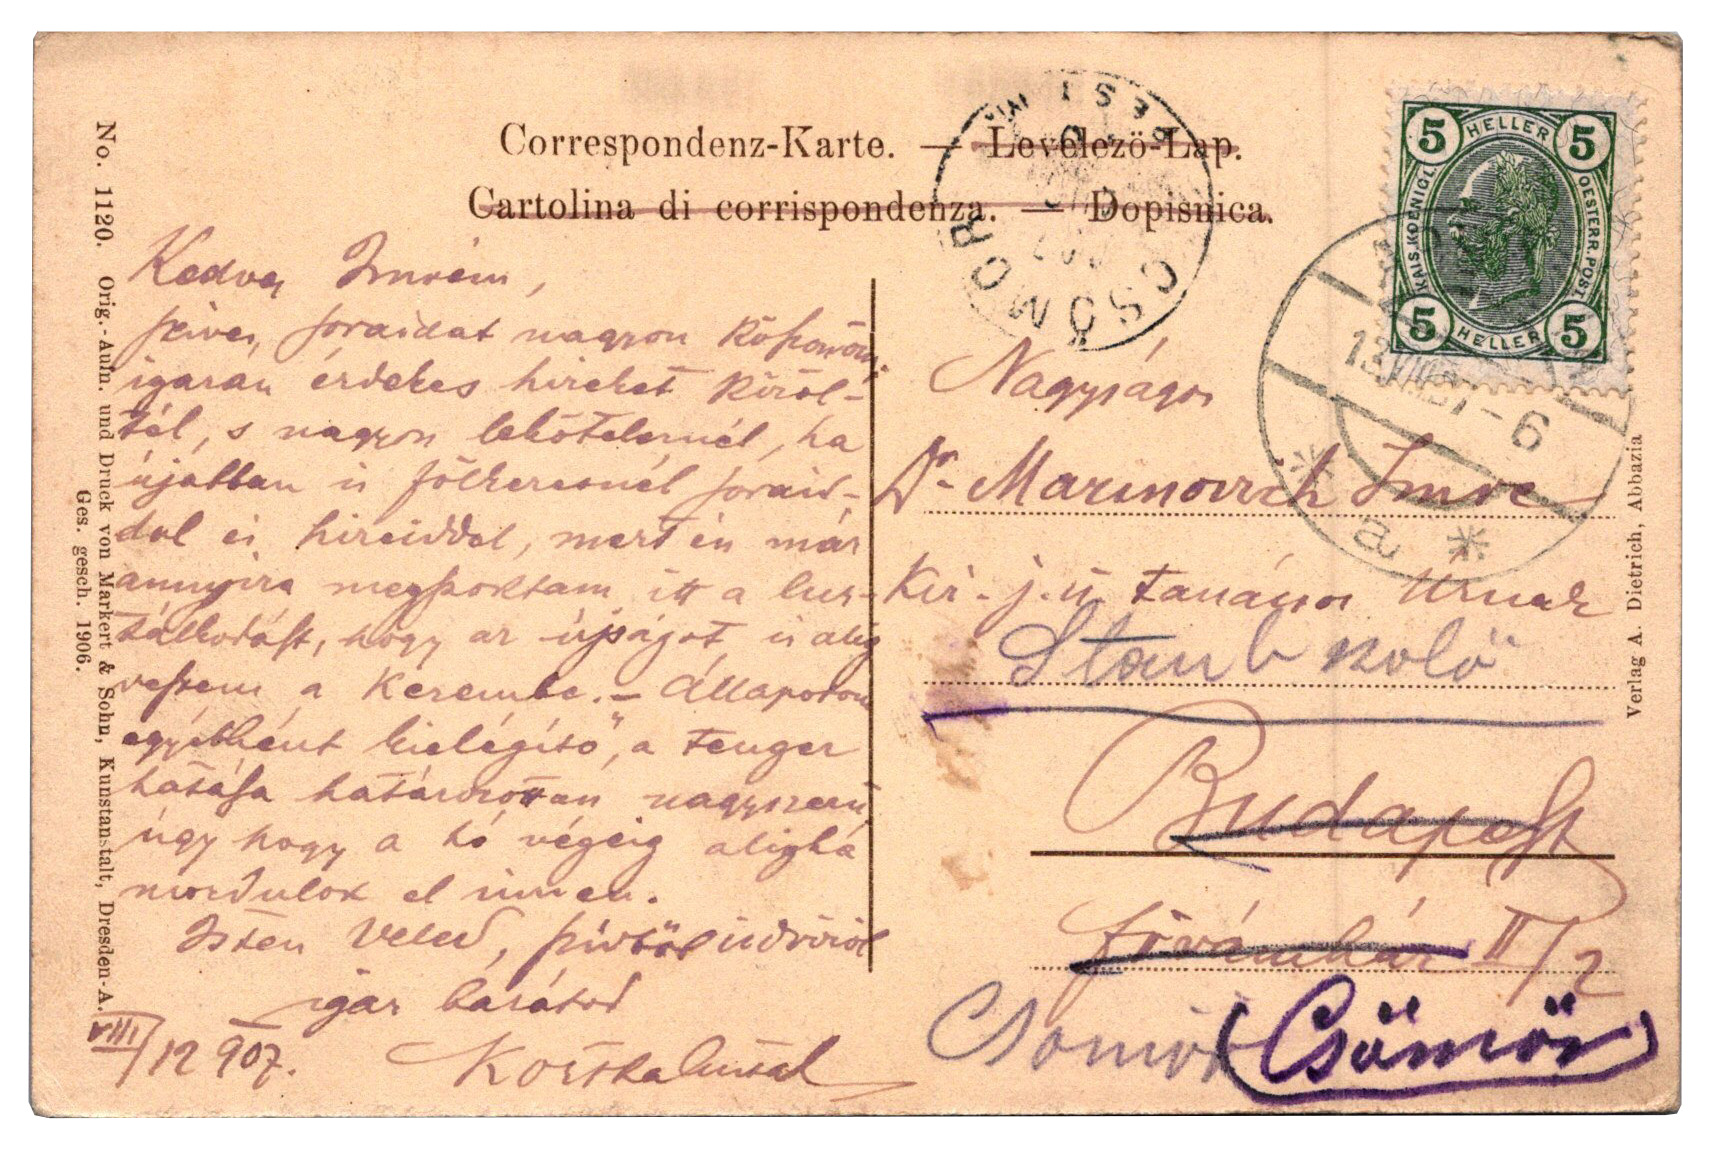 Correspondenz-Karte. — Levelezö-Lap.
Cartolina di corrispondenza. — Dopisnica.
No. 1120. Orig.-Aufn. und Druck von Markert & Sohn, Kunstanstalt, Dresden-A.
Ges. gesch. 1906.
Kedves Imrém,
szíves soraidat nagyon köszönöm,
igazán érdekes hireket közöl-
tél, s nagyon leköteleznél, ha
újabban is fölkeresnél soraid-
dal és hireiddel, mert én már
annyira megszoktam itt a lus-
tálkodást, hogy az újságot is alig
veszem a kezembe. – Állapotom
egyébként kielégítő, a tenger
hatása határozottan nagyszerű,
úgy hogy a hó végéig aligha
mozdulok el innen.
Isten Veled, szívből üdvözöl
igaz barátod
VIII/12 907.
5 HELLER 5
KAIS. KOENIGL. OESTERR. POST
5 HELLER 5
CSÖMÖR
13 VIII 07-6
a
Nagyságos
Dr. Marinovich Imre
kir. j. ü. tanácsos Urnak
Budapest
Fővámház II/2
Csömör
(Csömör)
Verlag A. Dietrich, Abbazia